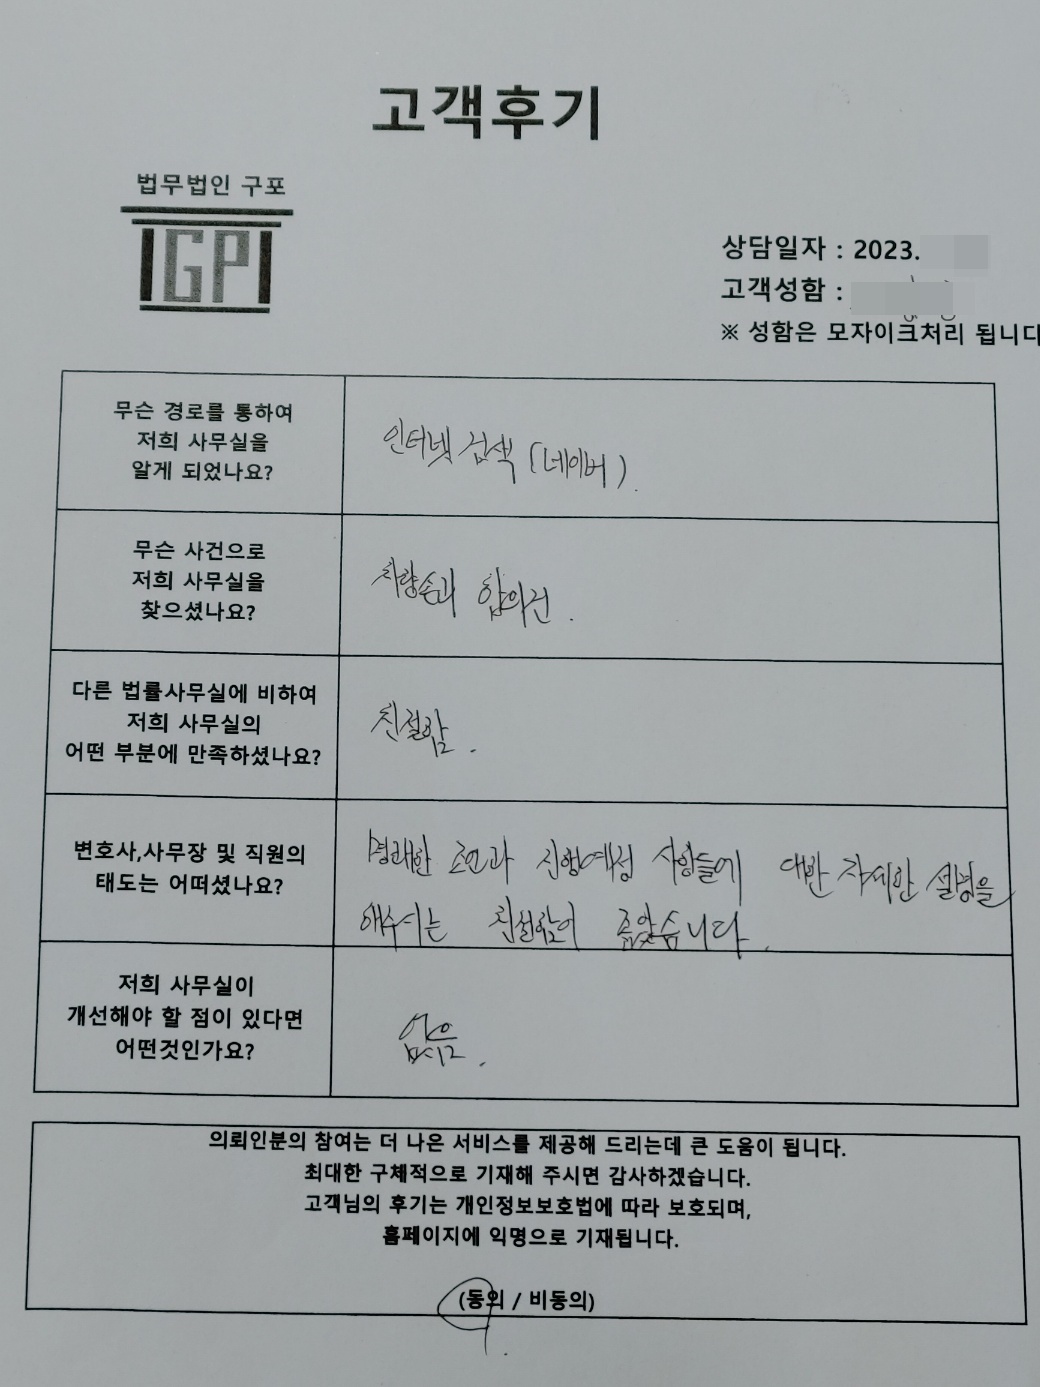 고객후기
법무법인 구포
GP
상담일자 : 2023.
고객성함 :
※ 성함은 모자이크처리 됩니다
무슨 경로를 통하여
저희 사무실을
알게 되었나요?
인터넷 검색 (네이버).
무슨 사건으로
저희 사무실을
찾으셨나요?
차량손괴 합의건.
다른 법률사무실에 비하여
저희 사무실의
어떤 부분에 만족하셨나요?
친절함.
변호사,사무장 및 직원의
태도는 어떠셨나요?
명쾌한 조언과 진행예정 사항들에 대한 자세한 설명을
해주시는 친절함이 좋았습니다.
저희 사무실이
개선해야 할 점이 있다면
어떤것인가요?
없음.
의뢰인분의 참여는 더 나은 서비스를 제공해 드리는데 큰 도움이 됩니다.
최대한 구체적으로 기재해 주시면 감사하겠습니다.
고객님의 후기는 개인정보보호법에 따라 보호되며,
홈페이지에 익명으로 기재됩니다.
(동의 / 비동의)